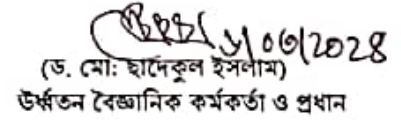 ০৬/2028
(ড. মো: ছাদেকুল ইসলাম)
উর্ধ্বতন বৈজ্ঞানিক কর্মকর্তা ও প্রধান